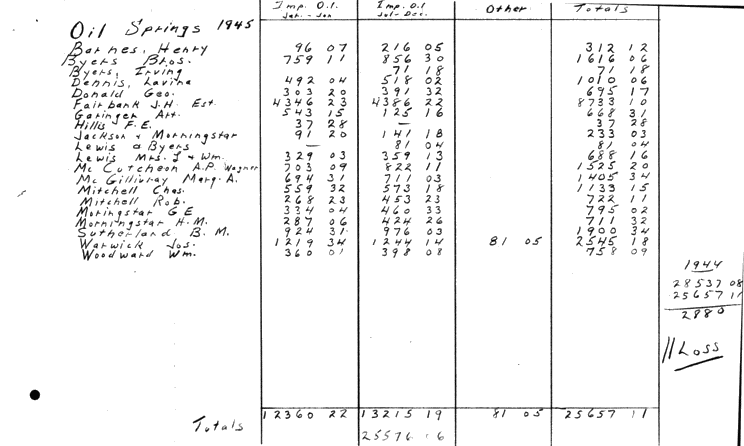 Oil Springs 1945
Imp. O.I. Jan. - Jun Imp. O.I Jul - Dec. Other Totals
Barnes, Henry 96 07 216 05 312 12
Byers Bros. 759 11 856 30 1616 06
Byers, Irving 71 18 71 18
Dennis, Lavina 492 04 518 02 1010 06
Donald Geo. 303 20 391 32 695 17
Fairbank J.H. Est. 4346 23 4386 22 8733 10
Gatinger Art. 543 15 125 16 668 31
Hillis F.E. 37 28 — 37 28
Jackson & Morningstar 91 20 141 18 233 03
Lewis & Byers — 81 04 81 04
Lewis Mrs. J & Wm. 329 03 359 13 688 16
Mc Cutcheon A.P. Wagner 703 09 822 11 1525 20
Mc Gillivray Marg. A. 694 31 711 03 1405 34
Mitchell Chas. 559 32 573 18 1133 15
Mitchell Rob. 268 23 453 23 722 11
Morningstar G E 334 04 460 33 795 02
Morningstar H.M. 287 06 424 26 711 32
Sutherland B. M. 924 31 976 03 1900 34
Warwick Jos. 1219 34 1244 14 81 05 2545 18
Woodward Wm. 360 01 398 08 758 09
1944
28537 08
25657 11
2880
// Loss
Totals 12360 22 13215 19 81 05 25657 11
25576 06